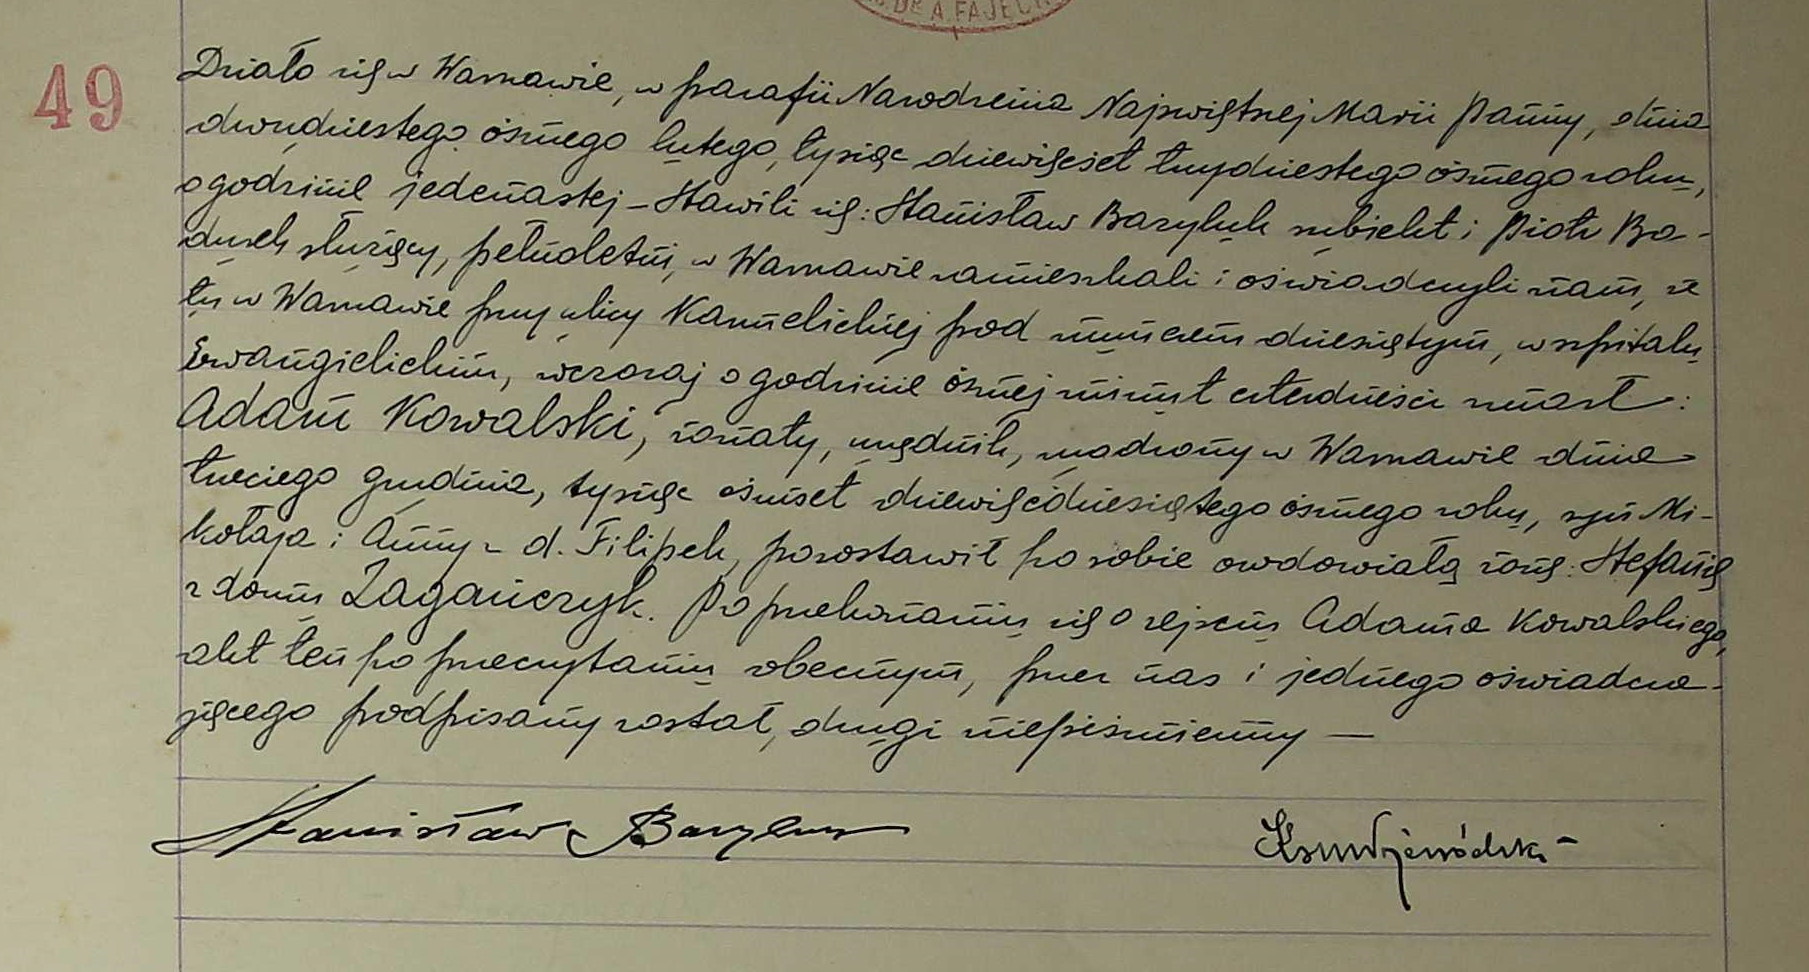 DR A. FAJĘCKI
49
Działo się w Warszawie, w parafii Narodzenia Najświętszej Marii Panny, dnia
dwudziestego ósmego lutego, tysiąc dziewięćset trzydziestego ósmego roku,
o godzinie jedenastej – Stawili się: Stanisław Baryluk subiekt i Piotr Ba-
duch służący, pełnoletni, w Warszawie zamieszkali i oświadczyli nam, że
tu w Warszawie przy ulicy Karmelickiej pod numerem dziesiątym, w szpitalu
Ewangielickim, wczoraj o godzinie ósmej minut czterdzieści zmarł:
Adam Kowalski, żonaty, urzędnik, urodzony w Warszawie dnia
trzeciego grudnia, tysiąc ośmset dziewięćdziesiątego ósmego roku, syn Mi-
kołaja i Anny z d. Filipek, pozostawił po sobie owdowiałą żonę: Stefanię
z domu Zagańczyk. Po przekonaniu się o zejściu Adama Kowalskiego,
akt ten po przeczytaniu obecnym, przez nas i jednego oświadcza-
jącego podpisany został, drugi niepiśmienny —
Stanisław Baryluk